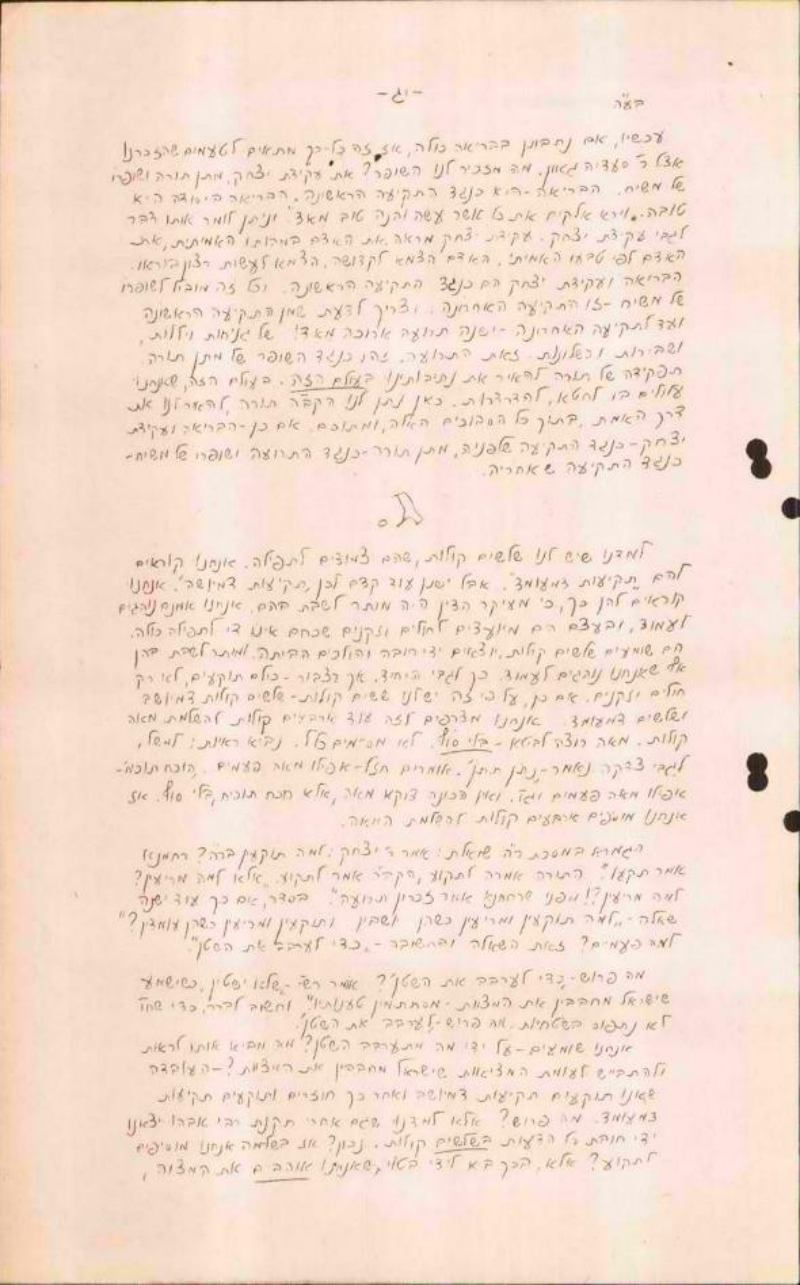 -יג-
בע"ה
עכשיו, אם נתבונן בבריאה כולה, אז זה כל-כך מתאים לטעמים שהזכרנו
אצל ר' סעדיה גאון. מה מזכיר לנו השופר? את עקידת יצחק, מתן תורה ושופרו
של משיח. הבריאה-היא כנגד התקיעה הראשונה. הבריאה היתה היא
טובה. "וירא אלקים את כל אשר עשה והנה טוב מאד" וניתן לומר אותו דבר
לגבי עקידת יצחק. עקידת יצחק מראה את האדם האמיתית, את
האדם לפי טבעו האמיתי, האדם הצמא לקדושה, הצמא לעשות רצון בוראו.
הבריאה ועקידת יצחק הם כנגד התקיעה הראשונה. וכל זה מוביל לשופרו
של משיח -זו התקיעה האחרונה. וצריך לדעת שמן התקיעה הראשונה
ועד לתקיעה האחרונה -ישנה תרועה ארוכה מאד! של גניחות ויללות,
ושבירות וכשלונות. זאת התרועה. זהו כנגד השופר של מתן תורה.
תפקידה של תורה להאיר את נתיבותינו בעולם הזה. בעולם הזה, שאנחנו
עלולים בו לחטא, להדרדרות. כאן נתן לנו הקב"ה תורה, להראות לנו את
דרך האמת, בתוך כל הסבוכים האלה, ומתוכם. אם כן -הבריאה ועקידת
יצחק-כנגד התקיעה שלפניה, מתן תורה-כנגד התרועה ושופרו של משיח-
כנגד התקיעה שאחריה.
למדנו שיש לנו שלשים קולות, שהם צמודים לתפילה. אנחנו קוראים
להם "תקיעות דמעומד". אבל ישנן עוד קדם לכן "תקיעות דמיושב". אנחנו
קוראים להן כך, כי מעיקר הדין היה מותר לשבת בהם. אנחנו אמנם נוהגים
לעמוד, ובעצם הם מיועדים לחולים וזקנים שכחם אינו די לתפילה כולה.
הם שומעים שלשים קולות, יוצאים ידי חובה והולכים הביתה. מותר לשבת בהן
אף שאנחנו נוהגים לעמוד. כך לגבי היחיד. אך בצבור - כולם תוקעים, לא רק
חולים וזקנים. אם כן, על פי זה יש לנו ששים קולות-שלשים קולות דמיושב
ושלשים דמעומד. אנחנו מצרפים לזה עוד ארבעים קולות להשלמת מאה
קולות. מאה רוצה לבטא -בלי סוף. לא מסיימים כלל. נביא ראיות: למשל,
לגבי צדקה נאמר-"נתן תתן". אומרים חז"ל-אפילו מאה פעמים. "הוכח תוכיח"-
אפילו מאה פעמים וגו'. ואין הכונה דוקא מאה, אלא הוכח תוכיח, בלי סוף. אז
אנחנו מוסיפים ארבעים קולות להשלמת המאה.
הגמרא במסכת ר"ה שואלת: "אמר ר' יצחק: למה תוקעין בר"ה? רחמנא
אמר תקעו!" התורה אמרה לתקוע, הקב"ה אמר לתקוע. "אלא למה מריעין?
למה מריעין?! מפני שרחמנא אמר זכרון תרועה". בסדר, אם כך עוד ישנה
שאלה-"למה תוקעין ומריעין כשהן יושבין ותוקעין ומריעין כשהן עומדין?"
למה פעמים? זאת השאלה ובתשובה-"כדי לערבב את השטן".
מה פרוש-"כדי לערבב את השטן"? אומר רש"י-"שלא ישטין, כשישמע
שישראל מחבבין את המצות-מסתתמין טענותיו". וחשוב לברר, כדי שח"ו
לא נתפוס בשטחיות. מה פרוש-"לערבב את השטן".
אנחנו שומעים-על ידי מה מתערבב השטן? מה מביא אותו לראות
ולהתבייש לעומת המציאות שישראל מחבבין את המצות?-העובדה
שאנו תוקעים תקיעות דמיושב ואחר כך חוזרים ותוקעים תקיעות
דמעומד. מה פרוש? אלא למדנו שגם אחרי תקנת רבי אבהו יצאנו
ידי חובת כל הדעות בשלשים קולות. נכון? אז בשלמה אנחנו מוסיפים
לתקוע? אלא, הכך בא לידי בטוי, שאנחנו אוהבים את המצוה,